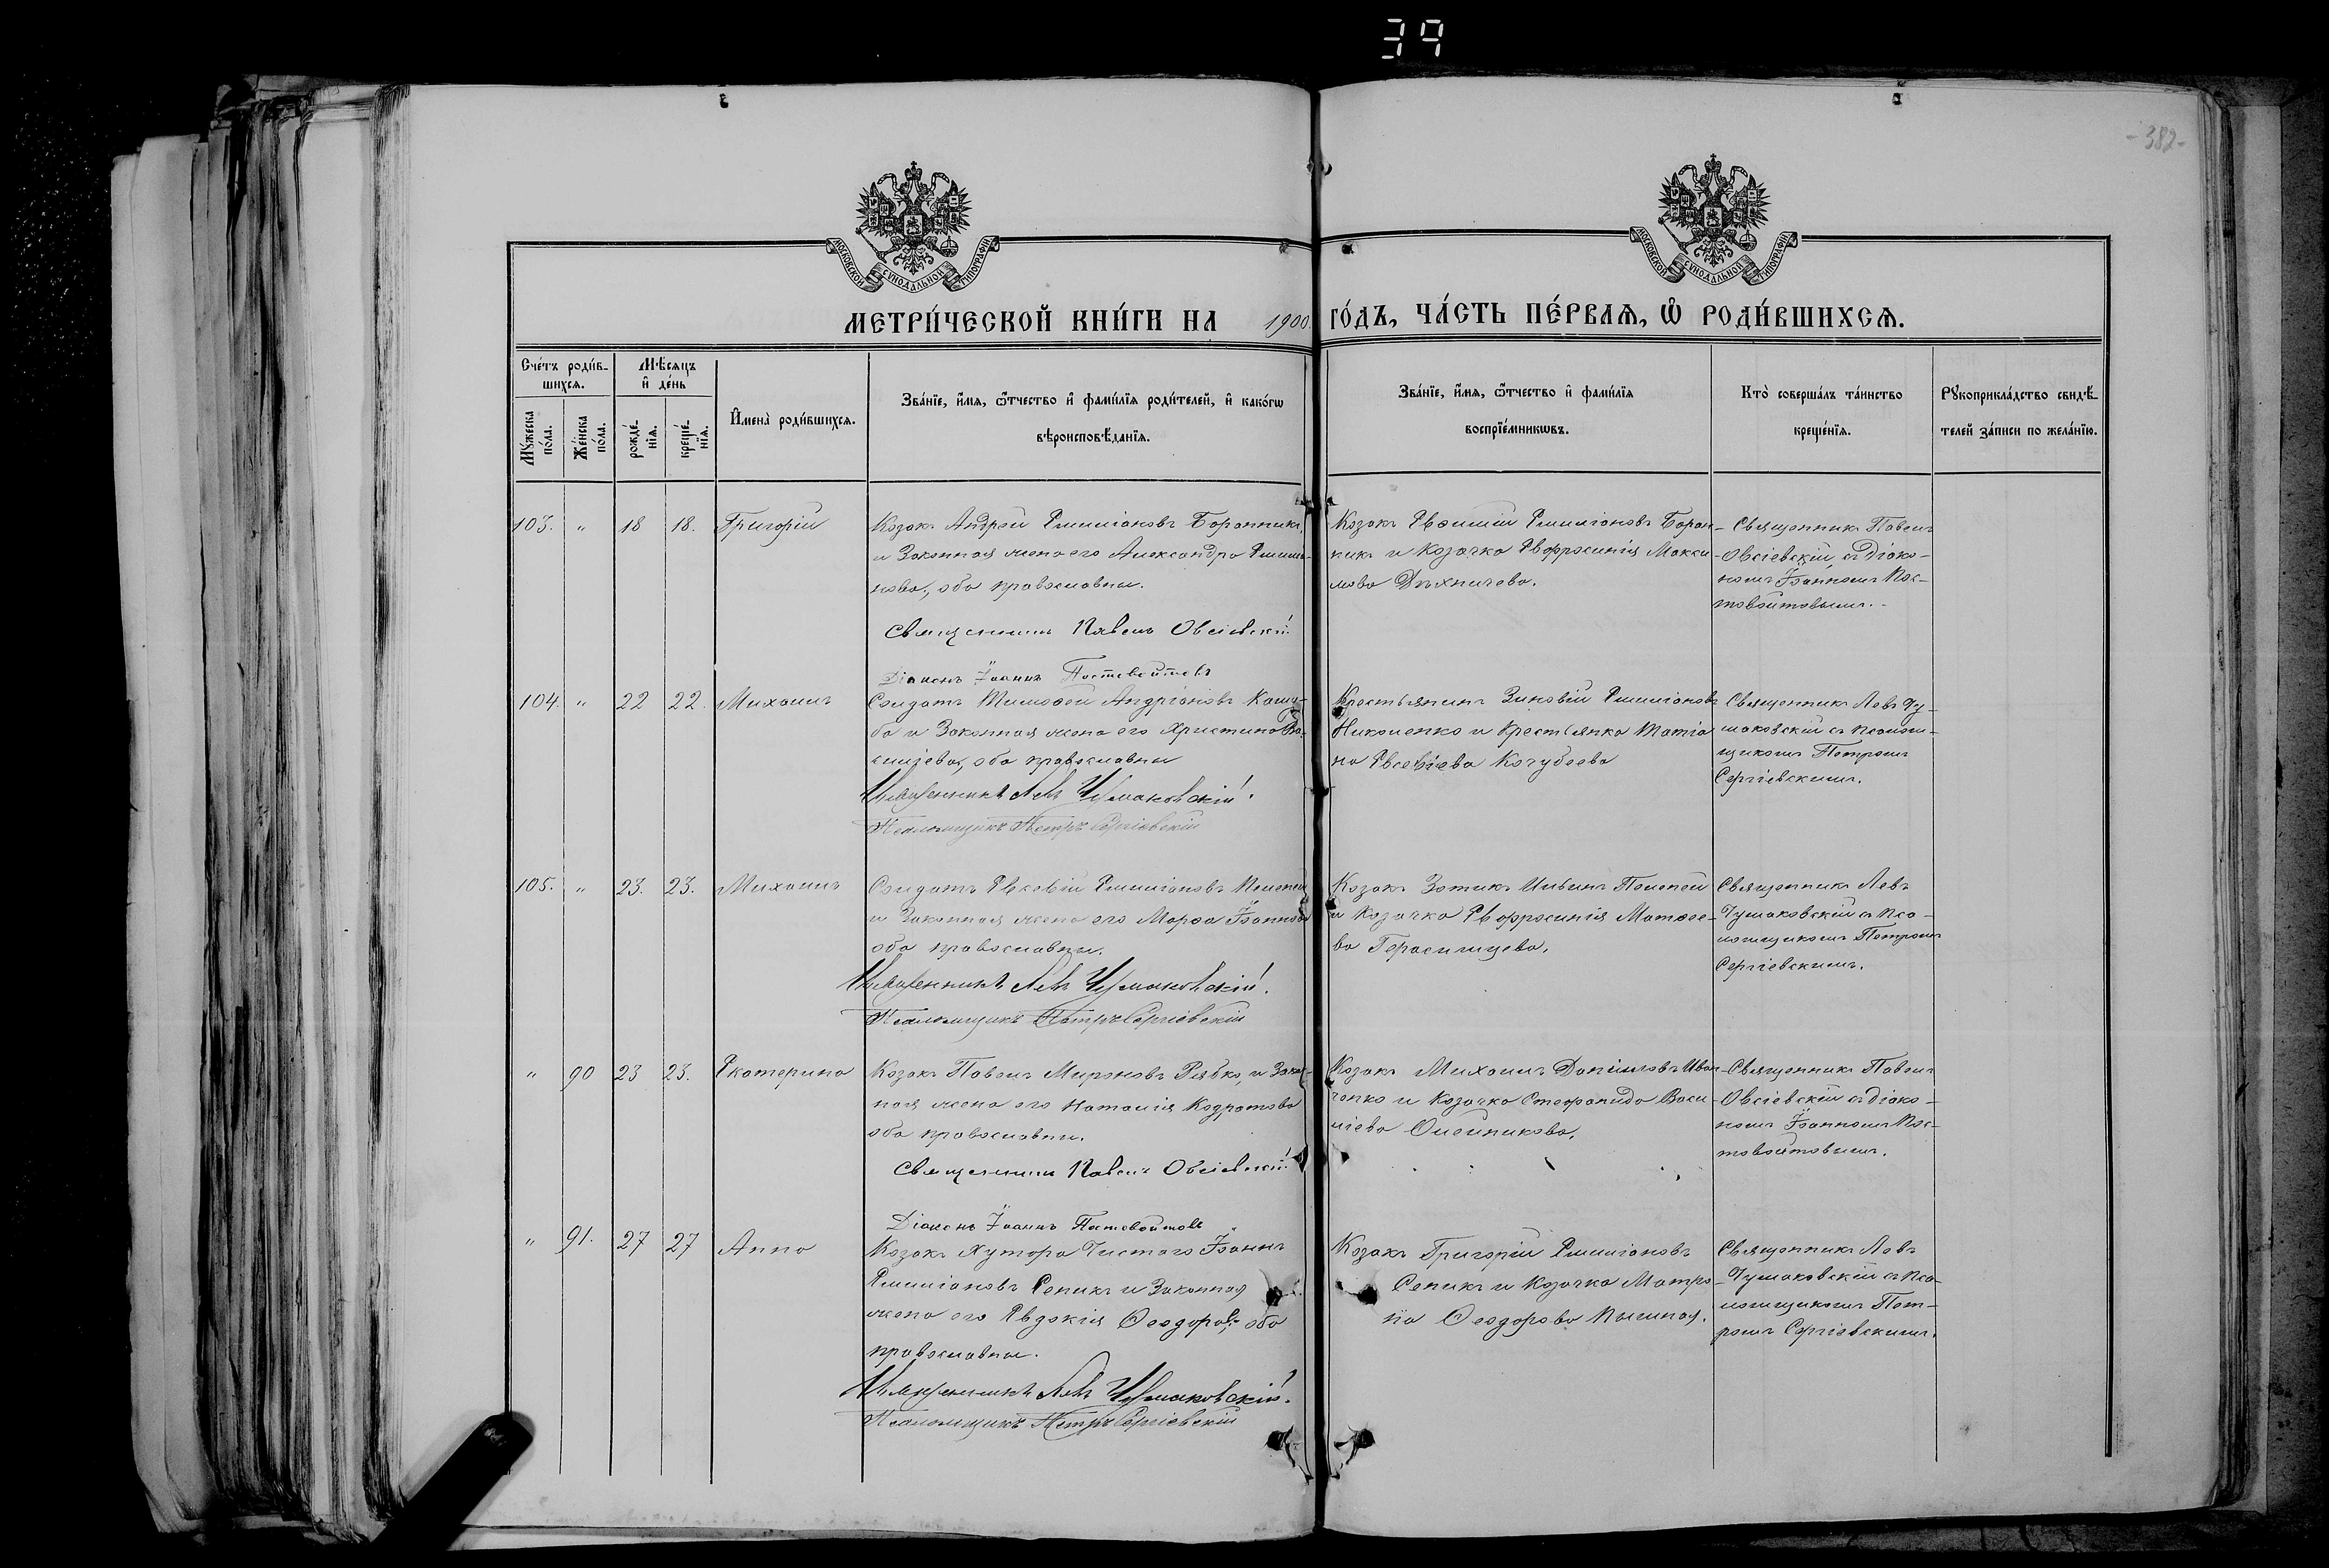 39
-382-
МОСКОВСКОЙ СѴНОДАЛЬНОЙ ТИПОГРАФІИ
МОСКОВСКОЙ СѴНОДАЛЬНОЙ ТИПОГРАФІИ
МЕТРИ́ЧЕСКОЙ КНИ́ГИ НА 1900 ГО́ДЪ, ЧА́СТЬ ПЕ́РВАѦ, Ѽ РОДИ́ВШИХСѦ.
Сче́тъ роди́в-
шихсѧ.
Мꙋ́жеска
по́ла.
Же́нска
по́ла.
Мѣ́сѧцъ
и҆ де́нь
рожде́-
нїѧ.
креще́-
нїѧ.
И҆мена̀ роди́вшихсѧ.
Зва́нїе, и҆́мѧ, ѻ҆́тчество и҆ фамі́лїѧ роди́телей, и҆ како́гѡ
вѣроисповѣ́данїѧ.
Зва́нїе, и҆́мѧ, ѻ҆́тчество и҆ фамі́лїѧ
воспрїе́мникѡвъ.
Кто̀ соверша́лъ та́инство
креще́нїѧ.
Рꙋкоприкла́дство свидѣ́-
телей за́писи по жела́нїю.
103. " 18 18. Григорій
Козакъ Андрей Емиліановъ Баранникъ
и законная жена его Александра Емилiа-
нова, оба православны.
Священникъ Павелъ Овсіевскій
Діаконъ Іоаннъ Постовойтовъ
Козакъ Евѳимій Емиліановъ Баран-
никъ и козачка Евфросинія Макси-
мова Дѣхничева.
Священникъ Павелъ
Овсіевскій съ діако-
номъ Іоанномъ Пос-
товойтовымъ.
104. " 22 22. Михаилъ
Солдатъ Тимоѳей Андріановъ Кашу-
ба и законная жена его Христина Ва-
силіева, оба православны
Священникъ Левъ Чумаковскій.
Псаломщикъ Петръ Сергіевскій
Крестьянинъ Зиновій Емиліановъ
Николенко и крестьянка Татіа
на Евсевіева Кочубеева
Священникъ Левъ Чу-
маковскій съ псалом-
щикомъ Петромъ
Сергіевскимъ.
105. " 23. 23. Михаилъ
Солдатъ Евсевій Емиліановъ Пелепей
и законная жена его Марѳа Іоаннова
оба православны.
Священникъ Левъ Чумаковскій.
Псаломщикъ Петръ Сергіевскій
Козакъ Зотикъ Ильинъ Пелепей
и козачка Евфросинія Матѳее-
ва Герасимцева.
Священникъ Левъ
Чумаковскій съ пса-
ломщикомъ Петромъ
Сергіевскимъ.
" 90 23 23. Екатерина
Козакъ Павелъ Мироновъ Рябко, и закон-
ная жена его Наталія Кодратова
оба православны.
Священникъ Павелъ Овсіевскій
Діаконъ Іоаннъ Постовойтовъ
Козакъ Михаилъ Даниловъ Иван-
ченко и козачка Стефанида Васи-
ліева Олейникова.
Священникъ Павелъ
Овсіевскій съ діако-
номъ Іоанномъ Пос-
товойтовымъ.
" 91. 27 27 Анна
Козакъ хутора Чистаго Іоаннъ
Емиліановъ Сепикъ и законная
жена его Евдокія Ѳеодоров., оба
православны.
Священникъ Левъ Чумаковскій.
Псаломщикъ Петръ Сергіевскій
Козакъ Григорій Емиліановъ
Сепикъ и козачка Матро-
на Ѳеодорова
Священникъ Левъ
Чумаковскій съ пса-
ломщикомъ Пет-
ромъ Сергіевскимъ.